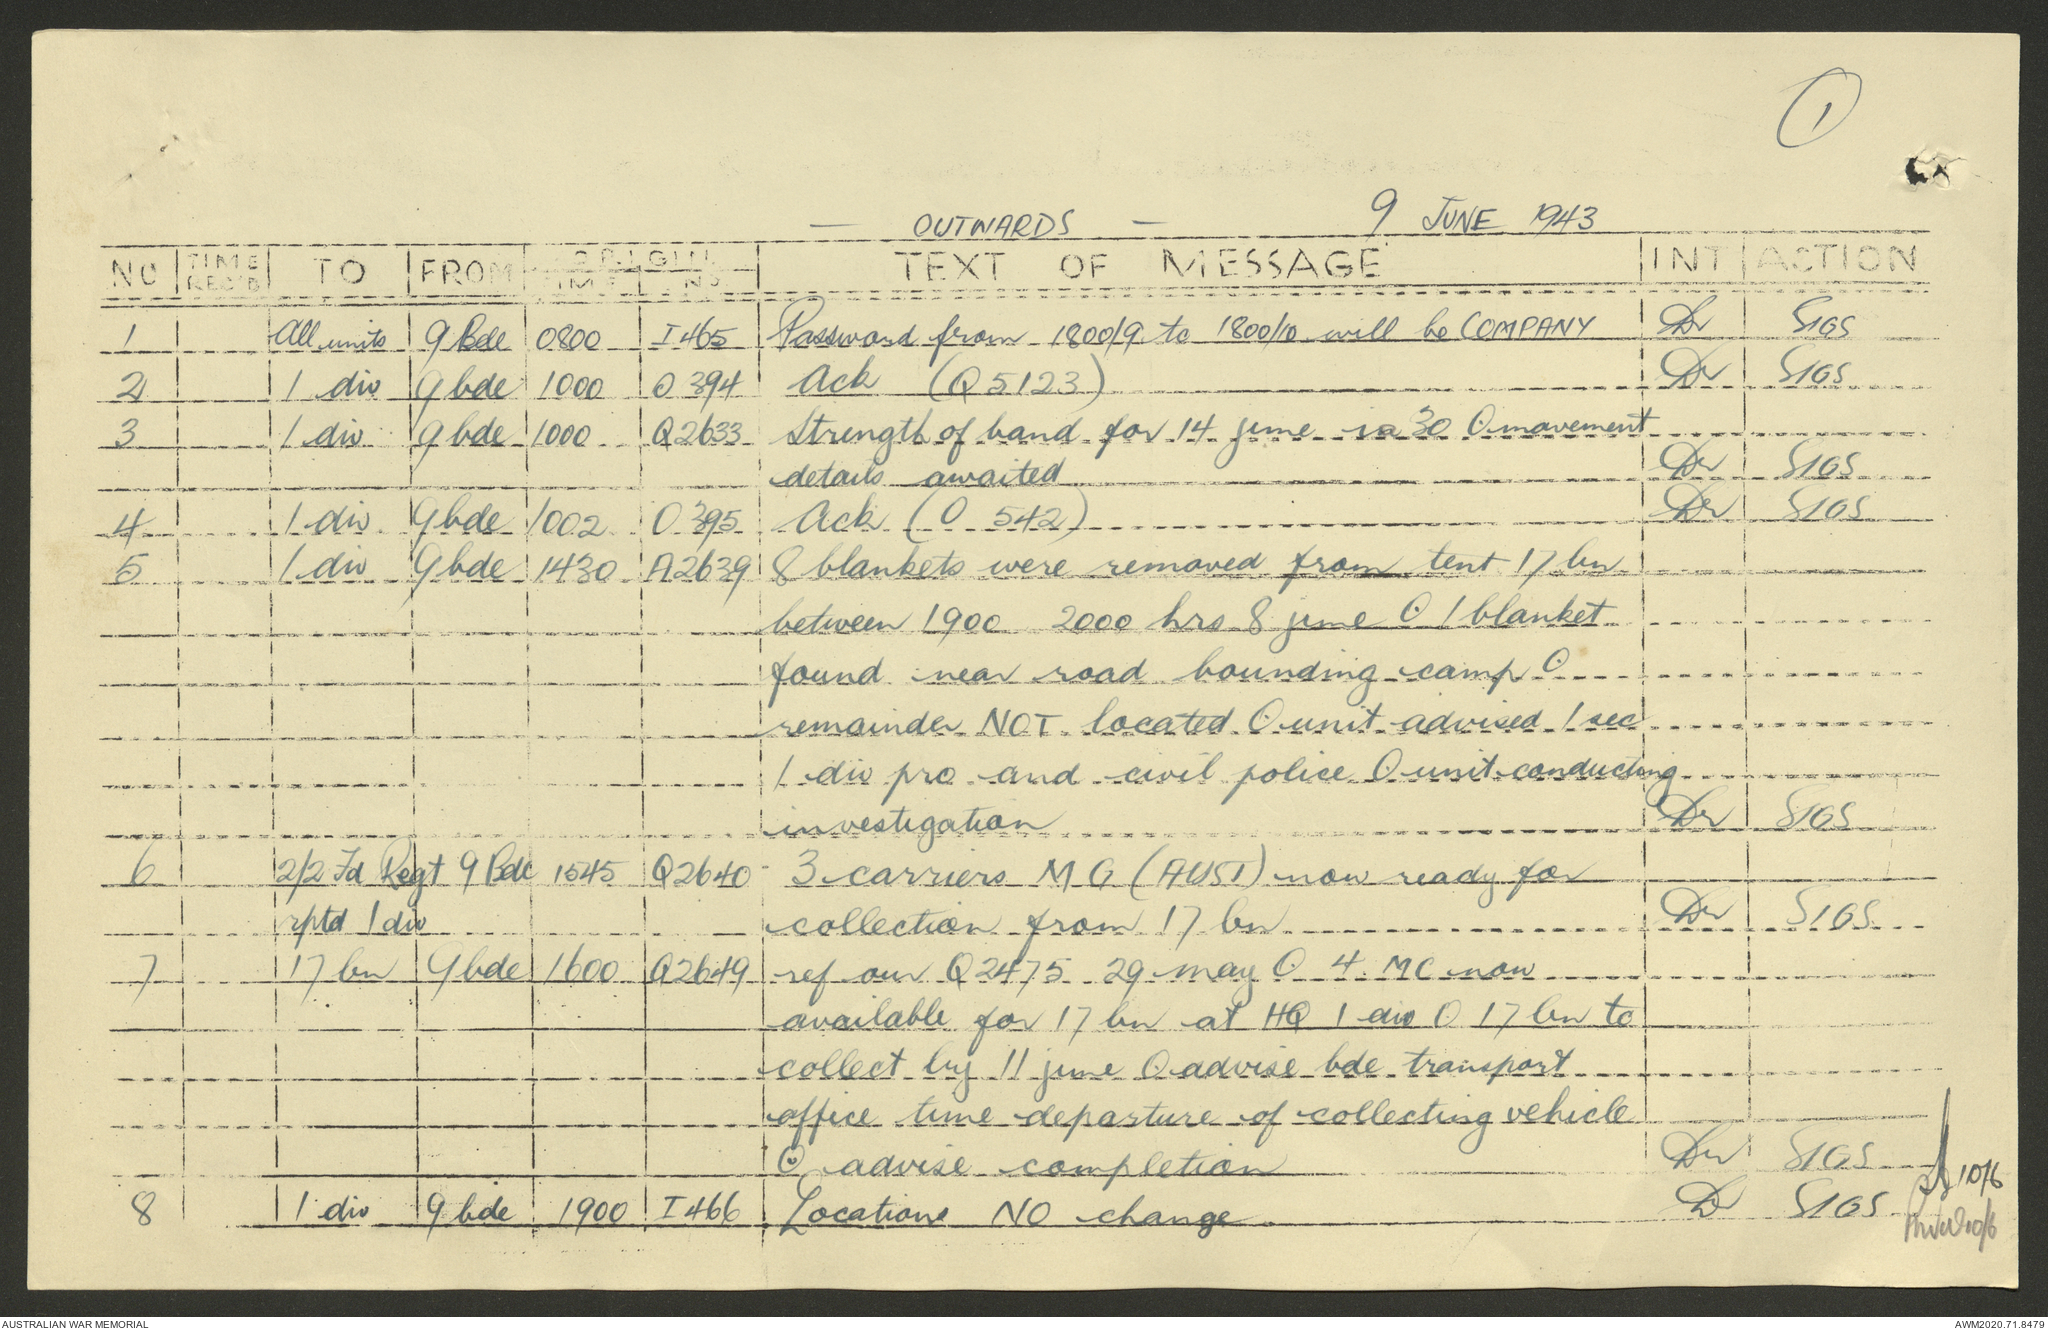 1
- OUTWARDS - 9 JUNE 1943
NO TIME REC'D TO FROM ORIGIN TIME NO TEXT OF MESSAGE INT ACTION
1 All units 9 Bde 0800 I 465 Password from 1800/9 to 1800/10 will be COMPANY Dr SIGS
2 1 div 9 bde 1000 O 394 Ack (Q 5123) Dr SIGS
3 1 div 9 bde 1000 Q2633 Strength of band for 14 june is 30 O movement
details awaited Dr SIGS
4 1 div 9 bde 1002 O 395 Ack (O 542) Dr SIGS
5 1 div 9 bde 1430 A2639 8 blankets were removed from tent 17 bn
between 1900 2000 hrs 8 june O 1 blanket
found near road bounding camp O
remainder NOT located O unit advised 1 sec
1 div pro and civil police O unit conducting
investigation Dr SIGS
6 2/2 Fd Regt 9 Bde 1545 Q2640 3 carriers MG (AUST) now ready for
rptd 1 div collection from 17 bn Dr SIGS
7 17 bn 9 bde 1600 Q2649 ref our Q2475 29 may O 4 MC now
available for 17 bn at HQ 1 div O 17 bn to
collect by 11 june O advise bde transport
office time departure of collecting vehicle
O advise completion Dr SIGS
8 1 div 9 bde 1900 I 466 Locations NO change Dr SIGS
10/6
10/6
AUSTRALIAN WAR MEMORIAL
AWM2020.71.8479